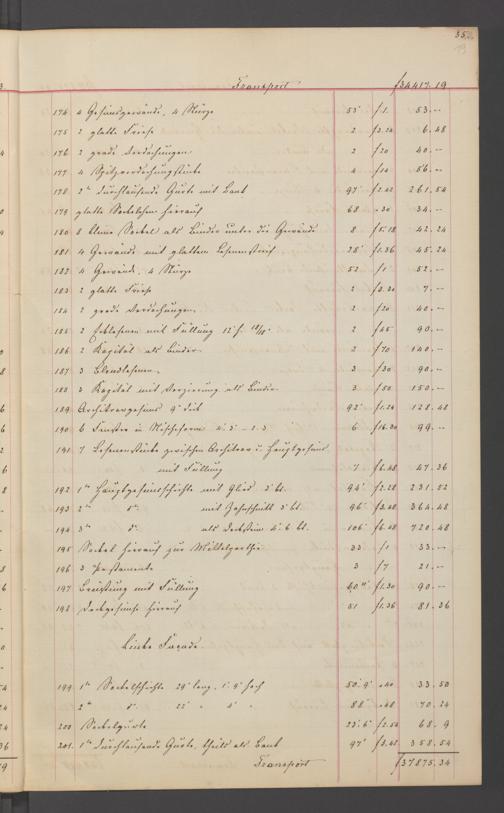 55
19
Transport f34417.19
174 4 Gesimsgewände, 4 Stürze 53' f1. 53.--
175 2 glatte Friese 2 f3.24 6.48
176 2 grade Verdachungen 2 f20 40.--
177 4 Spitzverdachungstücke 4 f14 56.--
178 2te durchlaufende Gurte mit Bank 97' f2.42 261.54
179 glatte Sockelschicht hierauf 68 .30 34.--
180 8 kleine Sockel als Binder unter die Gewände 8 f5.18 42.24
181 4 Gewände mit glattem Lesenenstreif f1.36 45.24
182 4 Gewände, 4 Stürze 52 f1 52.--
183 2 glatte Friese 2 f3.30 7.--
184 2 grade Verdachungen 2 f20 40.--
185 2 Ecklesenen mit Füllung 2 f45 90.--
186 2 Kapitäl als Binder 2 f70 140.--
187 3 Blendlesenen 3 f30 90.--
188 3 Kapitäl mit Verzierung als Binder 3 f50 150.--
189 Architravgesims 9" dick 92' f1.24 128.48
190 6 Fenster in Nischenform 6 f16.30 99.--
191 7 Lesenenstücke zwischen Architrav u. Hauptgesims
mit Füllung 7 f6.48 47.36
192 1te Hauptgesimsschichte mit Glied 94' f2.28 231.52
193 2te do mit Zahnschnitt 96' f3.48 364.48
194 3te do als Deckstein 106' f6.48 720.48
195 Sockel hierauf zur Mittelparthie 33 f1 33.--
196 3 Postamente 3 f7 21.--
197 Brüstung mit Füllung 60 f1.30 90.--
198 Deckgesimse hierauf 51 f1.36 81.36
Linke Façade.
199 1te Sockelschichte lang, hoch 50'.9" .40 33.50
2te do 88' .48 70.24
200 Sockelgurte 23'.6" f2.54 68.9
201. 1te durchlaufende Gurte, theils als Bank 97' f3.42 358.54
Transport f37875.34